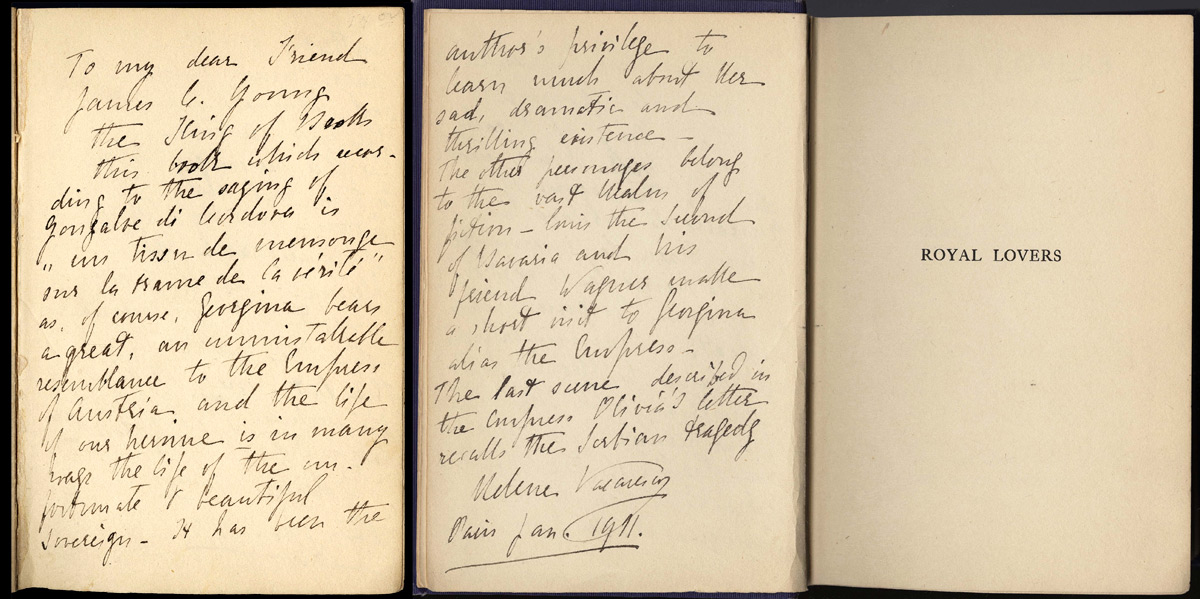 To my dear Friend
James C. Young
the King of Books
this book which accor-
ding to the saying of
Gonzalve di Cordova is
„ un tissu de mensonge
sur la trame de la vérité"
as, of course, Georgina bears
a great, an unmistakable
resemblance to the Empress
of Austria and the life
of our heroine is in many
ways the life of the un-
fortunate & beautiful
Sovereign - It has been the
author's privilege to
learn much about Her
sad, dramatic and
thrilling existence -
The other personages belong
to the vast realm of
fiction - Louis the Second
of Bavaria and his
friend Wagner make
a short visit to Georgina
alias the Empress -
The last scene described in
the Empress Olivia's letter
recalls the Serbian tragedy
Helene Vacaresco
Paris Jan. 1911.
ROYAL LOVERS